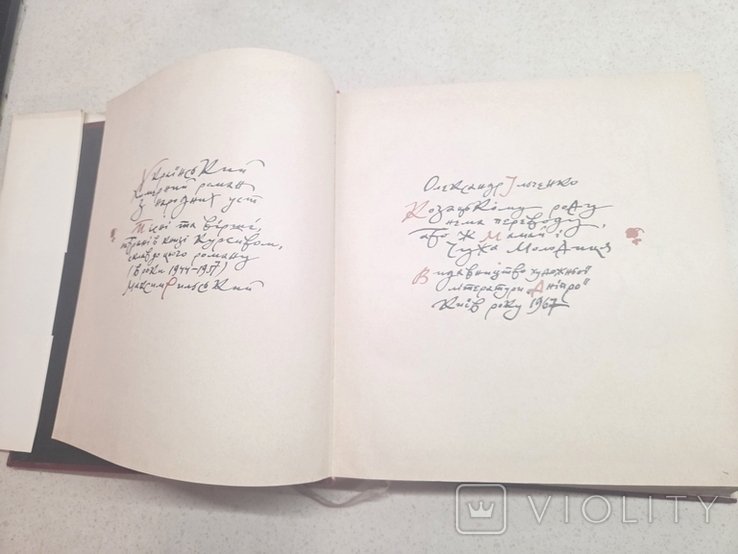 Український
химерний роман
з народних уст
Пісні та вірші,
курсивом,
до цього романту
(в роки 1944-1957)
Максим Рильський
Олександр Ільченко
Козацькому роду
нема переводу,
або ж Мамай і
Чужа Молодиця
Видавництво художньої
літератури „Дніпро"
Київ року 1967
VIOLITY